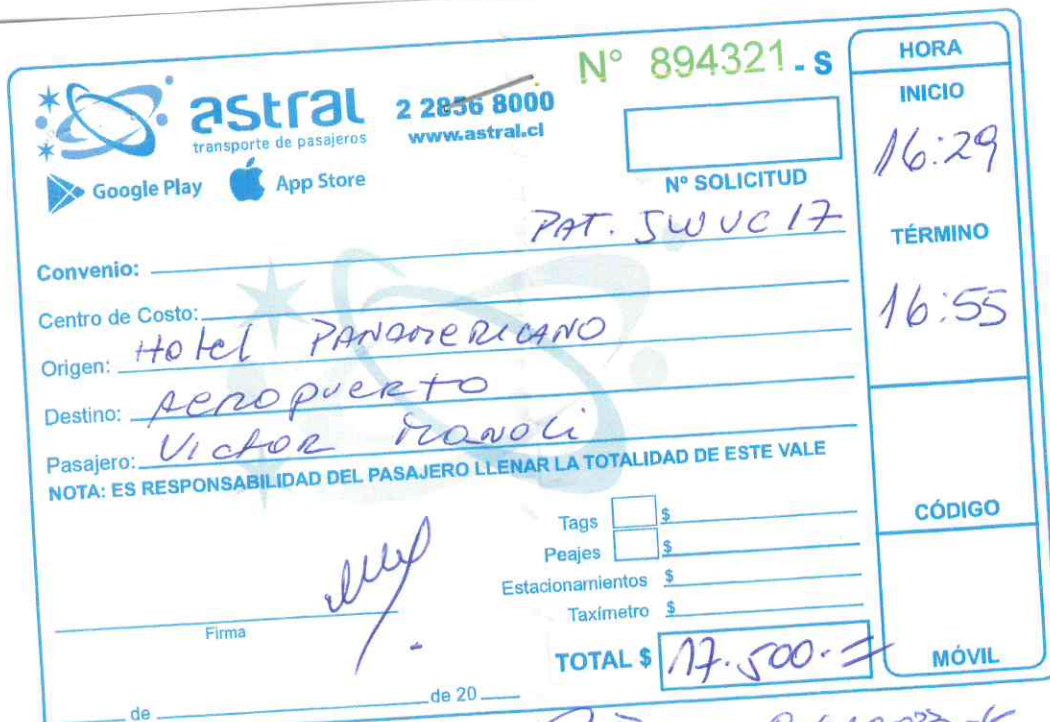 N° 894321-S
astral
transporte de pasajeros
2 2856 8000
www.astral.cl
Google Play
App Store
N° SOLICITUD
PAT. JWVC 17
Convenio:
Centro de Costo:
Origen: Hotel PANAMERICANO
Destino: AEROPUERTO
Pasajero: VICTOR
NOTA: ES RESPONSABILIDAD DEL PASAJERO LLENAR LA TOTALIDAD DE ESTE VALE
Tags $
Peajes $
Estacionamientos $
Taxímetro $
Firma
TOTAL $ 17.500.=
de de 20
HORA
INICIO
16:29
TÉRMINO
16:55
CÓDIGO
MÓVIL